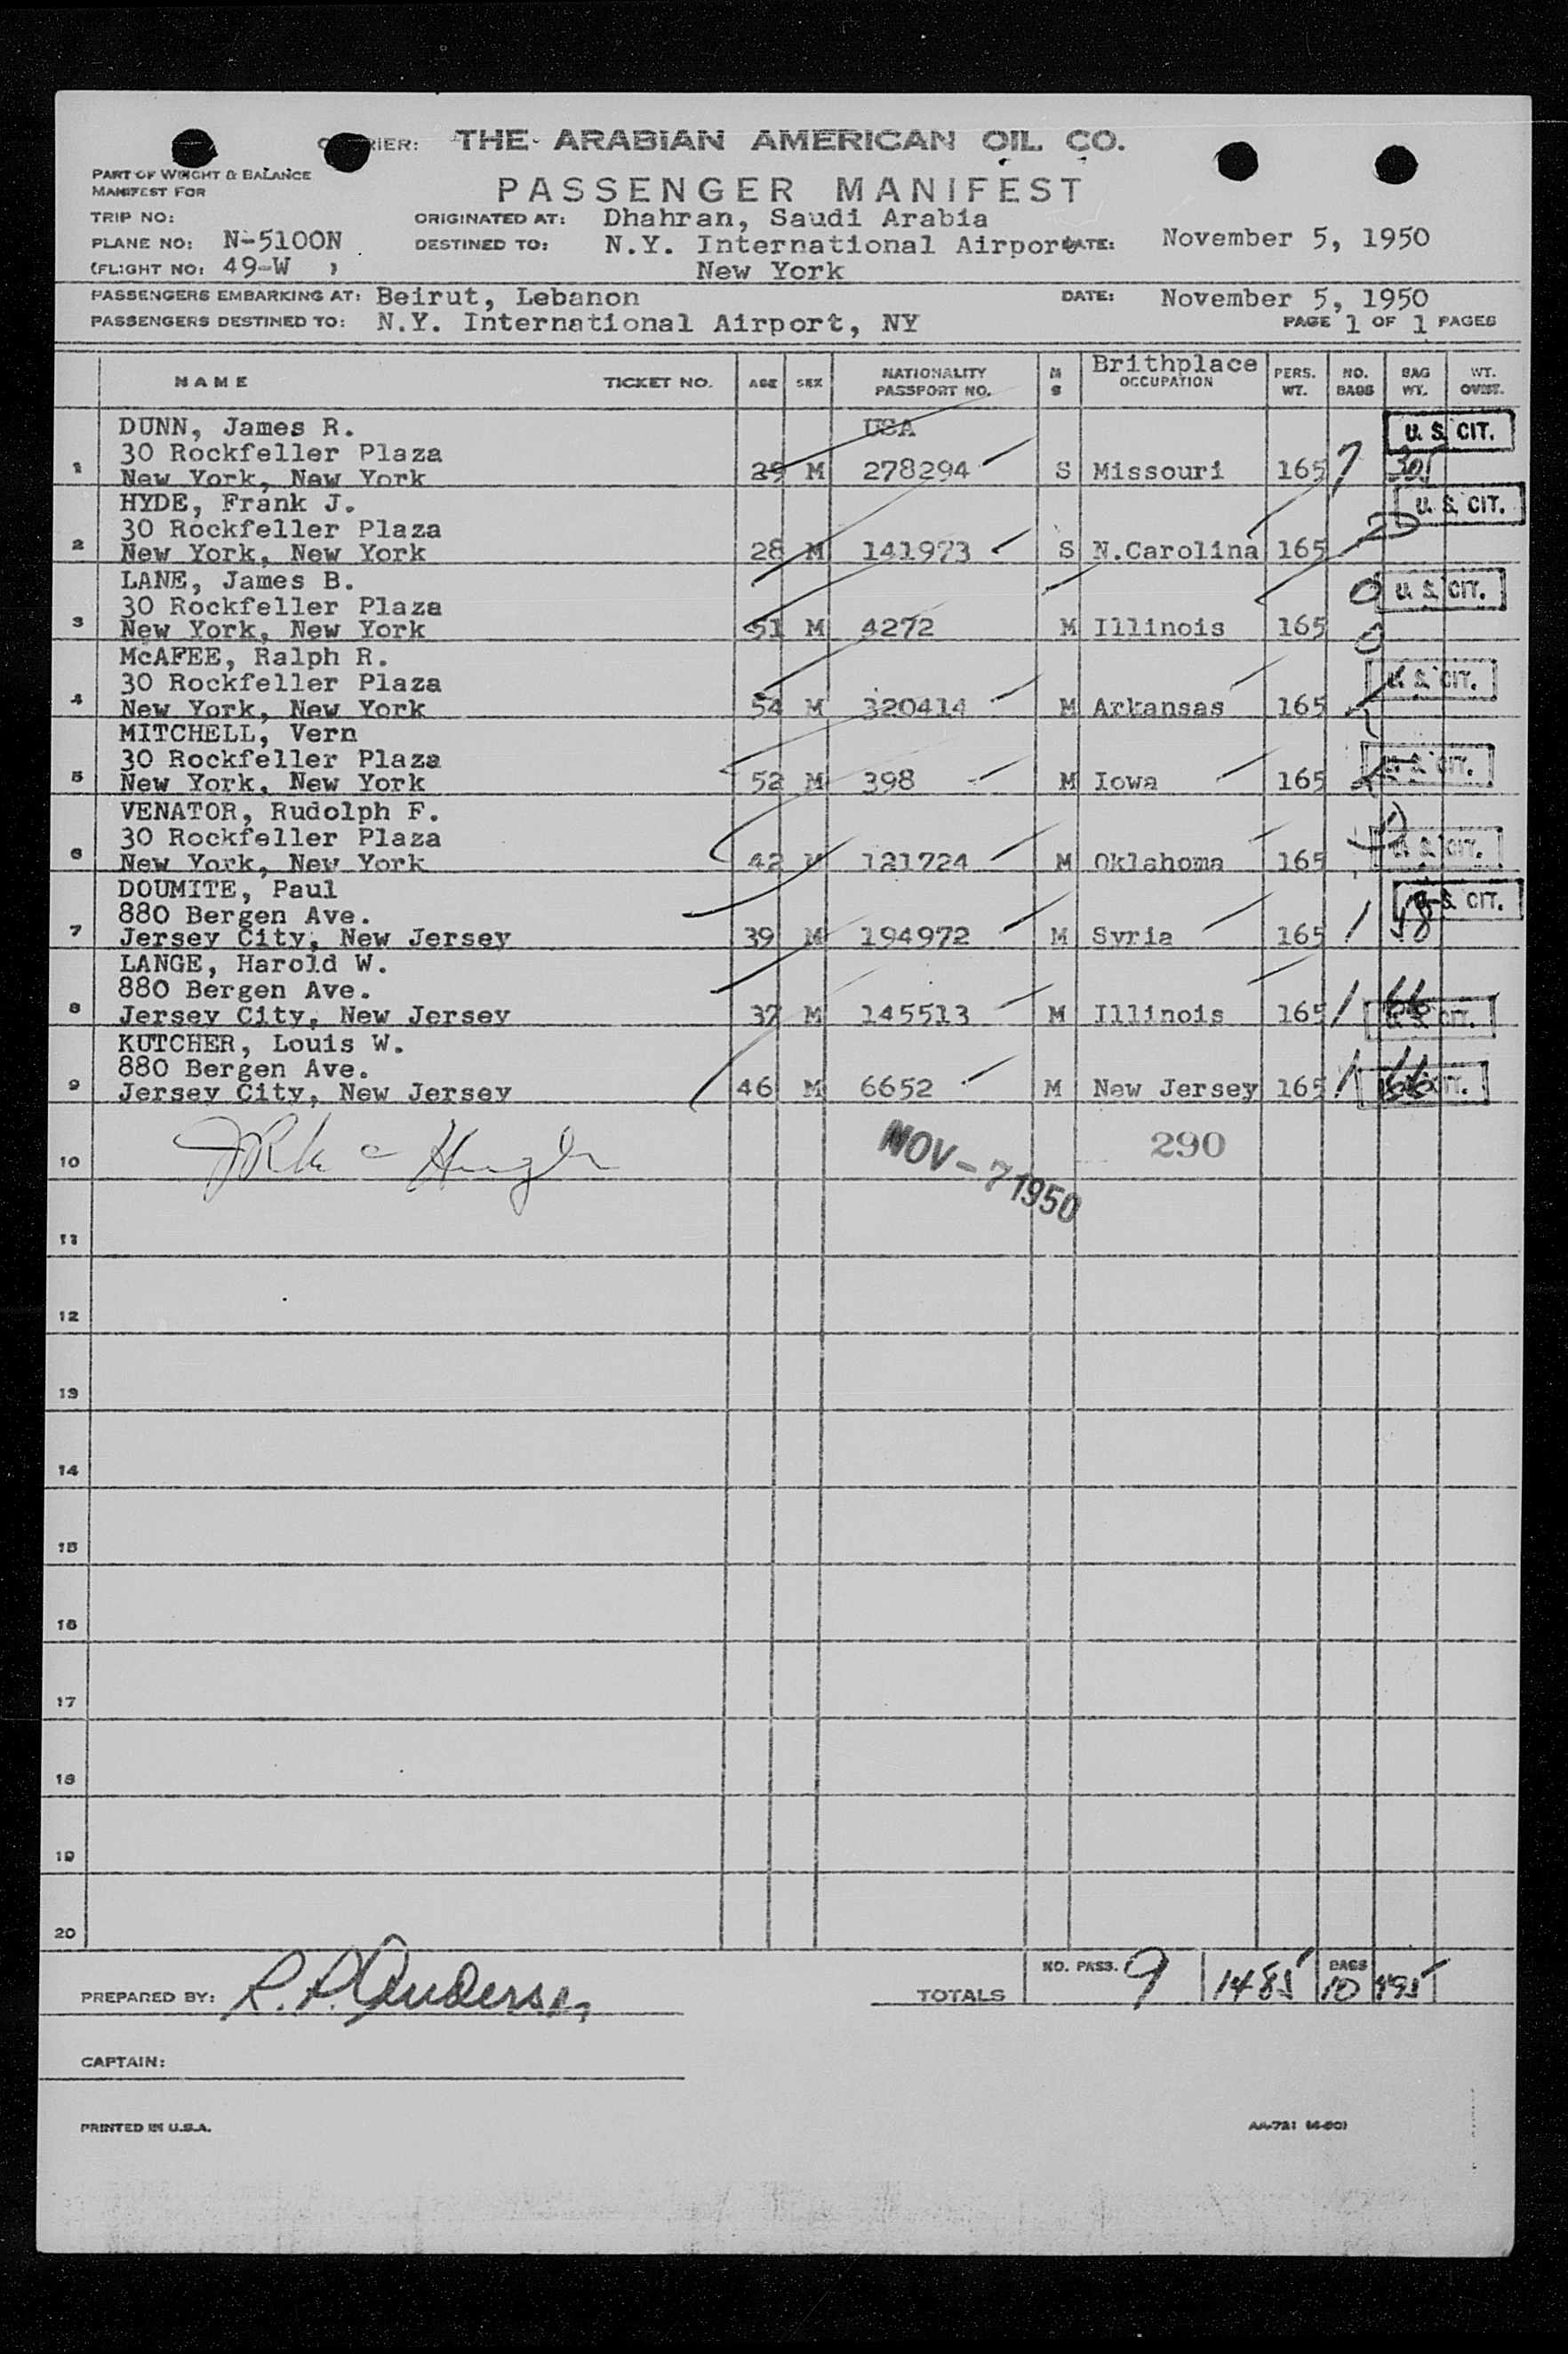 CARRIER: THE ARABIAN AMERICAN OIL CO.
PART OF WEIGHT & BALANCE
MANIFEST FOR
PASSENGER MANIFEST
TRIP NO: ORIGINATED AT: Dhahran, Saudi Arabia
PLANE NO: N-5100N DESTINED TO: N.Y. International Airport DATE: November 5, 1950
(FLIGHT NO: 49-W ) New York
PASSENGERS EMBARKING AT: Beirut, Lebanon DATE: November 5, 1950
PASSENGERS DESTINED TO: N.Y. International Airport, NY PAGE 1 OF 1 PAGES
NAME TICKET NO. AGE SEX NATIONALITY PASSPORT NO. M S Brithplace OCCUPATION PERS. WT. NO. BAGS BAG WT. WT. OVWT.
DUNN, James R. USA U. S. CIT.
30 Rockfeller Plaza
1 New York, New York M 278294 S Missouri 165 7 305
HYDE, Frank J. U. S. CIT.
30 Rockfeller Plaza
2 New York, New York 28 M 141973 S N.Carolina 165
LANE, James B. U. S. CIT.
30 Rockfeller Plaza
3 New York, New York 51 M 4272 M Illinois 165
McAFEE, Ralph R. U. S. CIT.
30 Rockfeller Plaza
4 New York, New York 54 M 320414 M Arkansas 165
MITCHELL, Vern U. S. CIT.
30 Rockfeller Plaza
5 New York, New York 52 M 398 M Iowa 165
VENATOR, Rudolph F.
30 Rockfeller Plaza U. S. CIT.
6 New York, New York 42 M 121724 M Oklahoma 165
DOUMITE, Paul U. S. CIT.
880 Bergen Ave.
7 Jersey City, New Jersey 39 M 194972 M Syria 165 1 58
LANGE, Harold W.
880 Bergen Ave.
8 Jersey City, New Jersey 37 M 145513 M Illinois 165 1 66 U. S. CIT.
KUTCHER, Louis W.
880 Bergen Ave.
9 Jersey City, New Jersey 46 M 6652 M New Jersey 165 1 66 CIT.
10 NOV - 7 1950 290
11
12
13
14
15
16
17
18
19
20
PREPARED BY: R. P. Anderson TOTALS NO. PASS. 9 1485 BAGS 10 495
CAPTAIN:
PRINTED IN U.S.A.